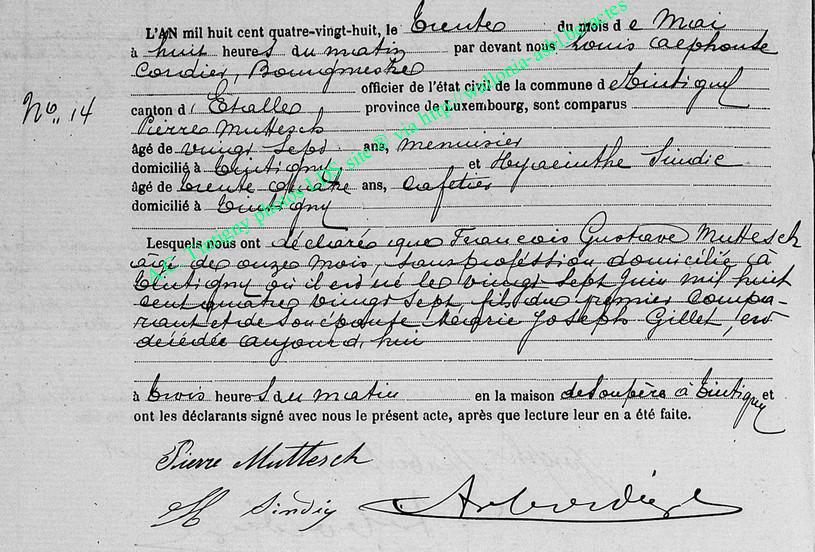 L'AN mil huit cent quatre-vingt-huit, le trente du mois de Mai
à huit heures du matin par devant nous Louis Alphonse
Cordier, Bourgmestre
officier de l'état civil de la commune de Tintigny
No. 14 canton d'Etalle province de Luxembourg, sont comparus
Pierre Muttesch
âgé de vingt sept ans, menuisier
domicilié à Tintigny et Hyacinthe Sindic
âgé de trente quatre ans, cafetier
domicilié à Tintigny
Lesquels nous ont déclaré que François Gustave Muttesch
âgé de onze mois, sans profession domicilié à
Tintigny où il est né le vingt sept Juin mil huit
cent quatre vingt sept fils du premier compa-
rant et de son épouse Marie Joseph Gillet, est
décédé aujourd'hui
à trois heures du matin en la maison de son père à Tintigny et
ont les déclarants signé avec nous le présent acte, après que lecture leur en a été faite.
Pierre Muttesch
H Sindig
A.C Tintigny photos LDS, site © via http://wallonia-asbl.be/actes